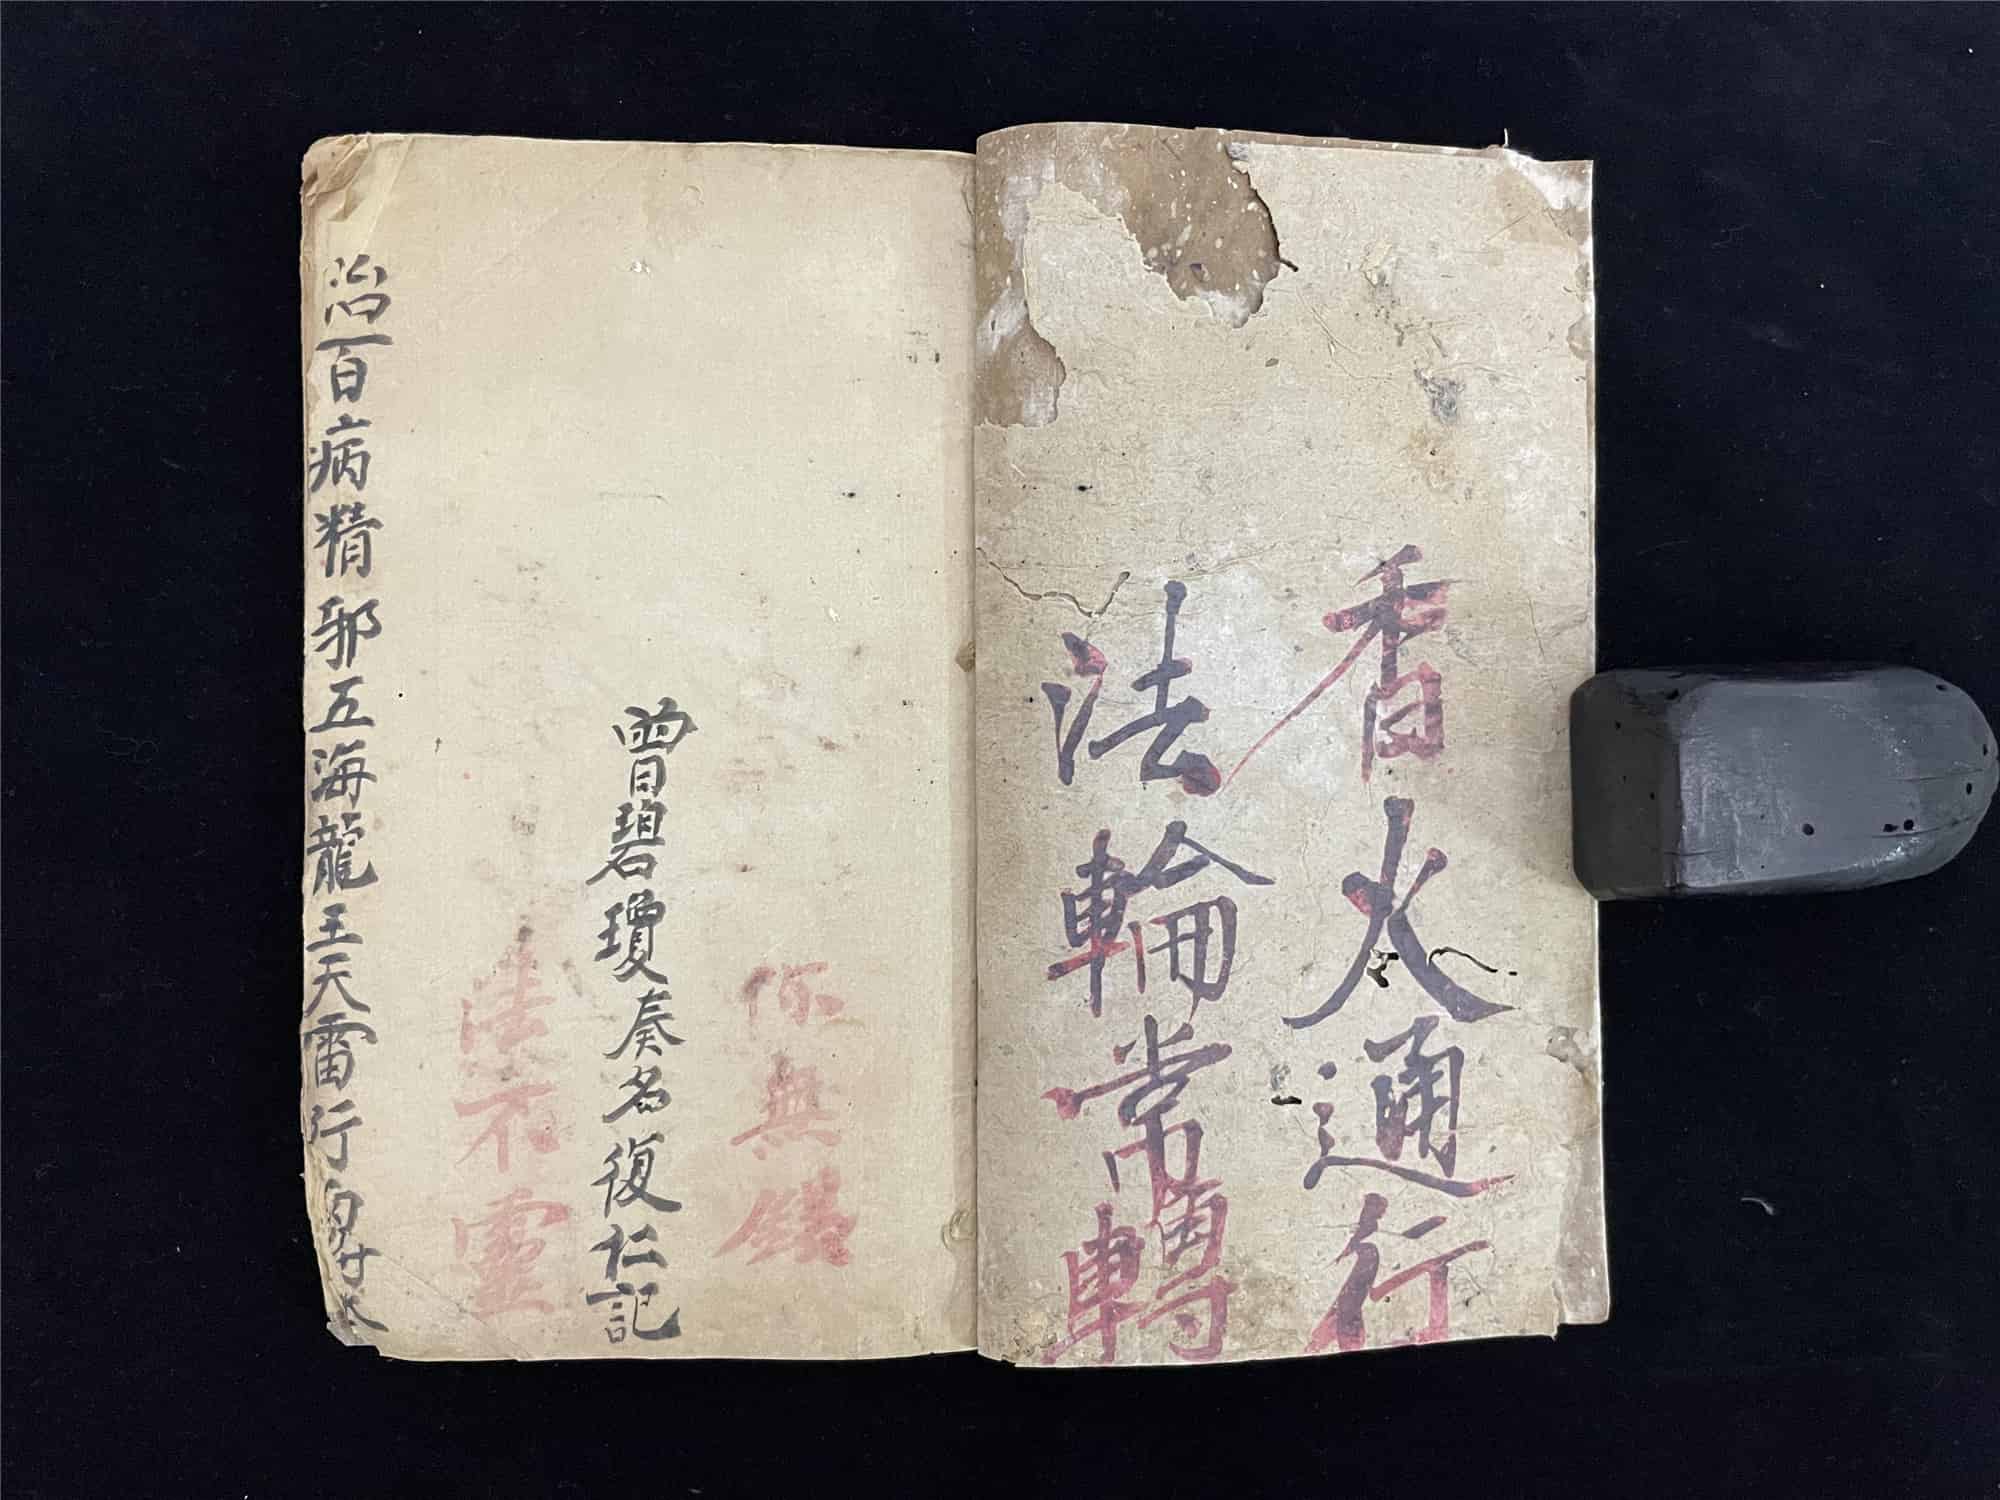 香火通行
法輪常轉
你無錢
曾碧瓊奏名復仁記
法不靈
治百病精邪五海龍王天雷行